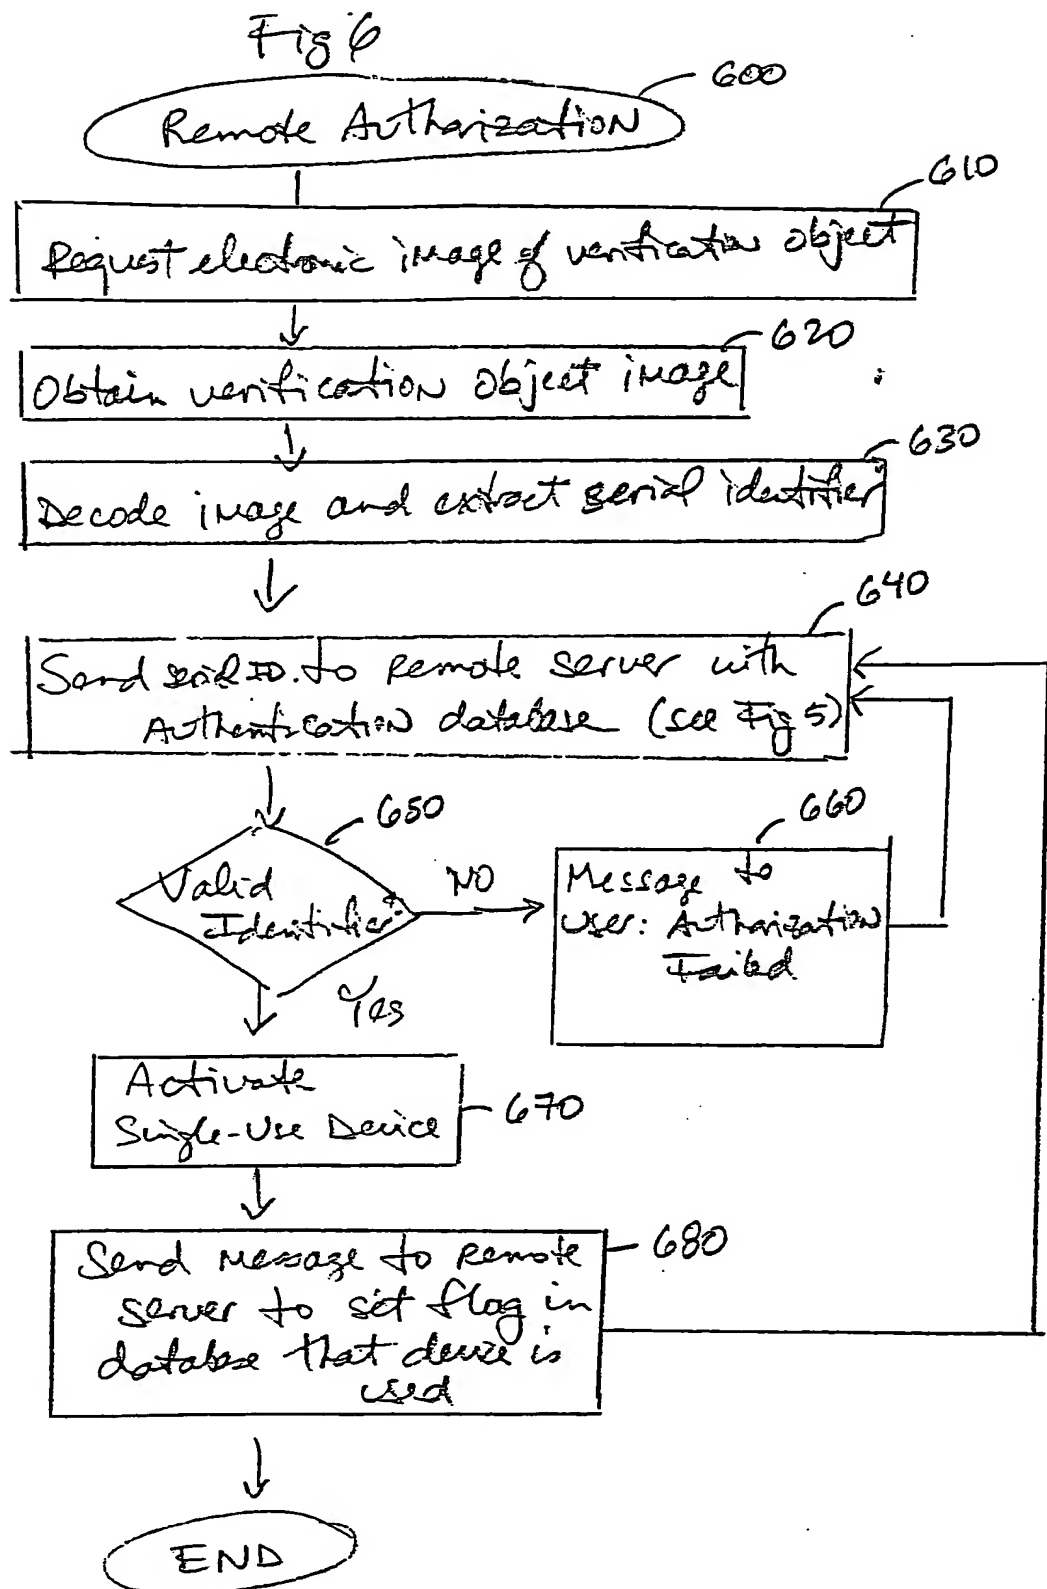 Fig 6
600
Remote Authorization
610
Request electronic image of verification object
620
Obtain verification object image
630
Decode image and extract serial identifier
640
Send serial ID. to Remote server with
Authentication database (see Fig 5)
650
Valid
Identifier?
NO
660
Message to
User: Authorization
Failed
Yes
Activate
Single-Use Device
670
Send message to remote
server to set flag in
database that device is
used
680
END